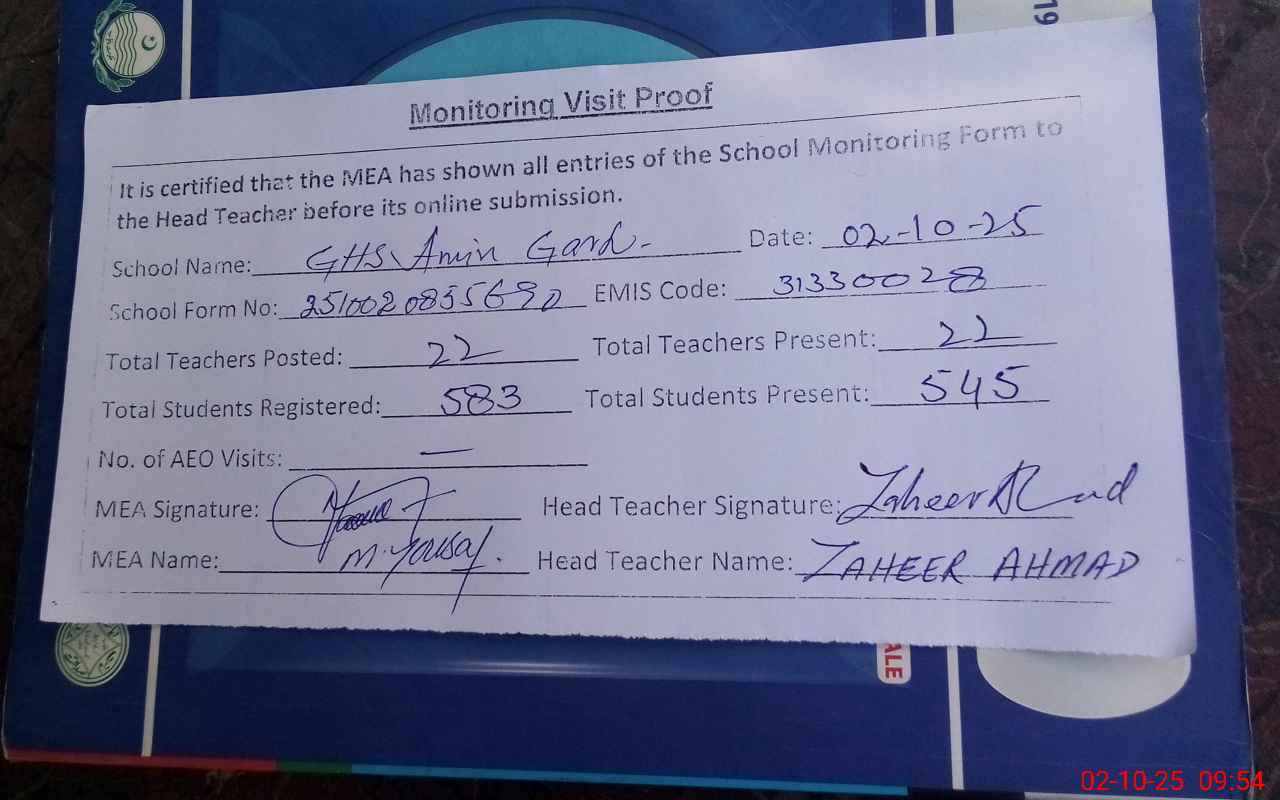 19
Monitoring Visit Proof
It is certified that the MEA has shown all entries of the School Monitoring Form to
the Head Teacher before its online submission.
School Name: GHS Amin Gard. Date: 02-10-25
School Form No: 2510020835690 EMIS Code: 31330028
Total Teachers Posted: 22 Total Teachers Present: 22
Total Students Registered: 583 Total Students Present: 545
No. of AEO Visits: —
MEA Signature: Head Teacher Signature: Zaheer Ahmad
MEA Name: M. Yousaf. Head Teacher Name: ZAHEER AHMAD
ALE
02-10-25 09:54